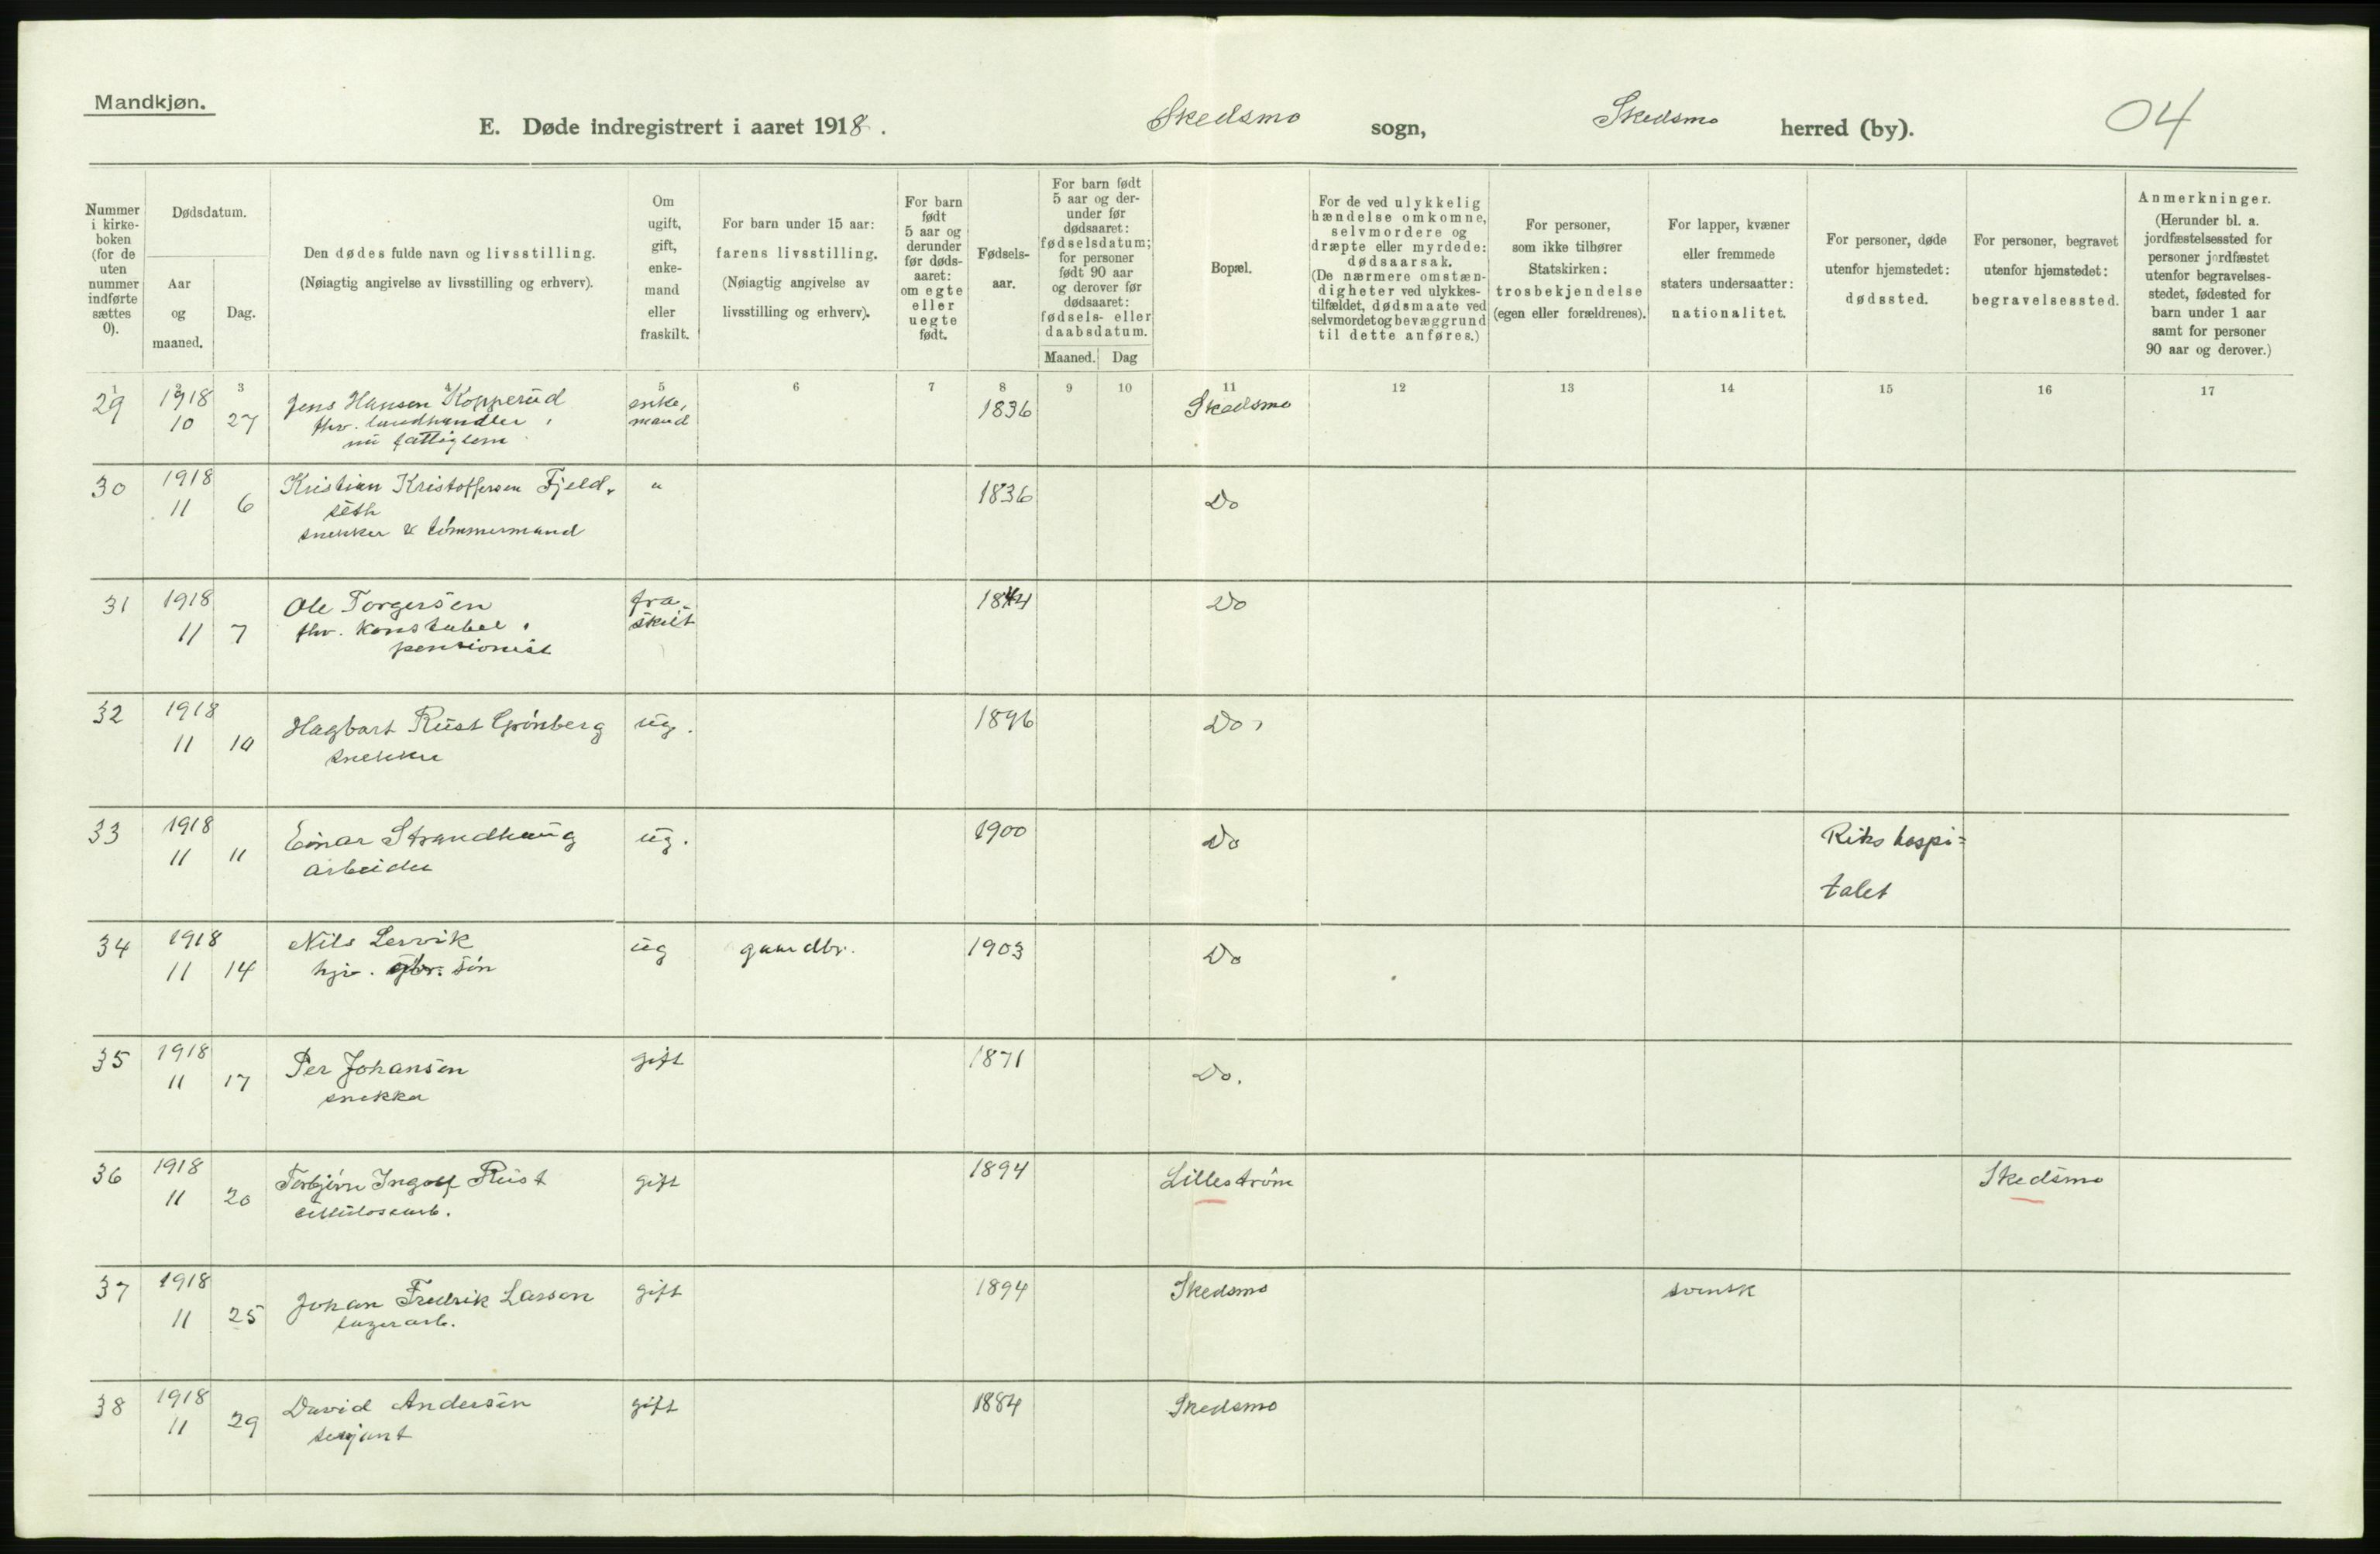 Mandkjøn.
E. Døde indregistrert i aaret 1918. Skedsmo sogn, Skedsmo herred (by). 04
Nummer i kirkeboken (for de uten nummer indførte sættes 0).
Dødsdatum.
Aar og maaned.
Dag.
Den dødes fulde navn og livsstilling.
(Nøiagtig angivelse av livsstilling og erhverv).
Om ugift, gift, enkemand eller fraskilt.
For barn under 15 aar:
farens livsstilling.
(Nøiagtig angivelse av
livsstilling og erhverv).
For barn født 5 aar og derunder før dødsaaret: om egte eller uegte født.
Fødselsaar.
For barn født 5 aar og derunder før dødsaaret: fødselsdatum; for personer født 90 aar og derover før dødsaaret: fødsels- eller daabsdatum.
Maaned. Dag
Bopæl.
For de ved ulykkelig hændelse omkomne, selvmordere og dræpte eller myrdede: dødsaarsak. (De nærmere omstændigheter ved ulykkestilfældet, dødsmaate ved selvmordet og bevæggrund til dette anføres.)
For personer, som ikke tilhører Statskirken: trosbekjendelse (egen eller forældrenes).
For lapper, kvæner eller fremmede staters undersaatter: nationalitet.
For personer, døde utenfor hjemstedet: dødssted.
For personer, begravet utenfor hjemstedet: begravelsessted.
Anmerkninger.
(Herunder bl. a. jordfæstelsessted for personer jordfæstet utenfor begravelsesstedet, fødested for barn under 1 aar samt for personer 90 aar og derover.)
1 2 3 4 5 6 7 8 9 10 11 12 13 14 15 16 17
29 1918 Jens Hansen Kopperud enke, 1836 Skedsmo
10 27 fhv. landhandler, mand
nu fattiglem
30 1918 Kristian Kristoffersen Fjeld- " 1836 Do
11 6 seth
snekker & tømmermand
31 1918 Ole Torgersen fra- 1844 Do
11 7 fhv. konstabel, skilt
pensionist
32 1918 Hagbart Rust Grønberg ug. 1896 Do,
11 10 snekker
33 1918 Einar Strandhaug ug. 1900 Do Riks hospi=
11 11 arbeider talet
34 1918 Nils Lervik ug gaardbr. 1903 Do
11 14 hjv. gbr. søn
35 1918 Per Johansen gift 1871 Do.
11 17 snekker
36 1918 Torbjørn Ingolf Rust gift 1894 Lillestrøm Skedsmo
11 20 cellulosearb.
37 1918 Johan Fredrik Larson gift 1894 Skedsmo svensk
11 25 lagerarb.
38 1918 David Andersen gift 1884 Skedsmo
11 29 serjant